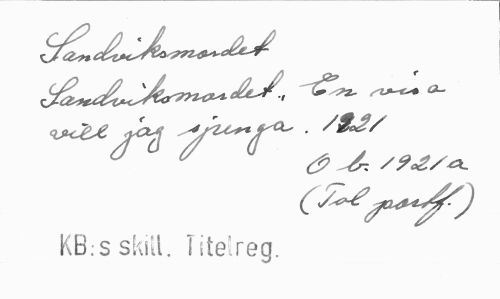 Sandviksmordet
Sandviksmordet. En visa
vill jag sjunga. 1921
O b. 1921 a
(Tal portf.)
KB:s skill. Titelreg.